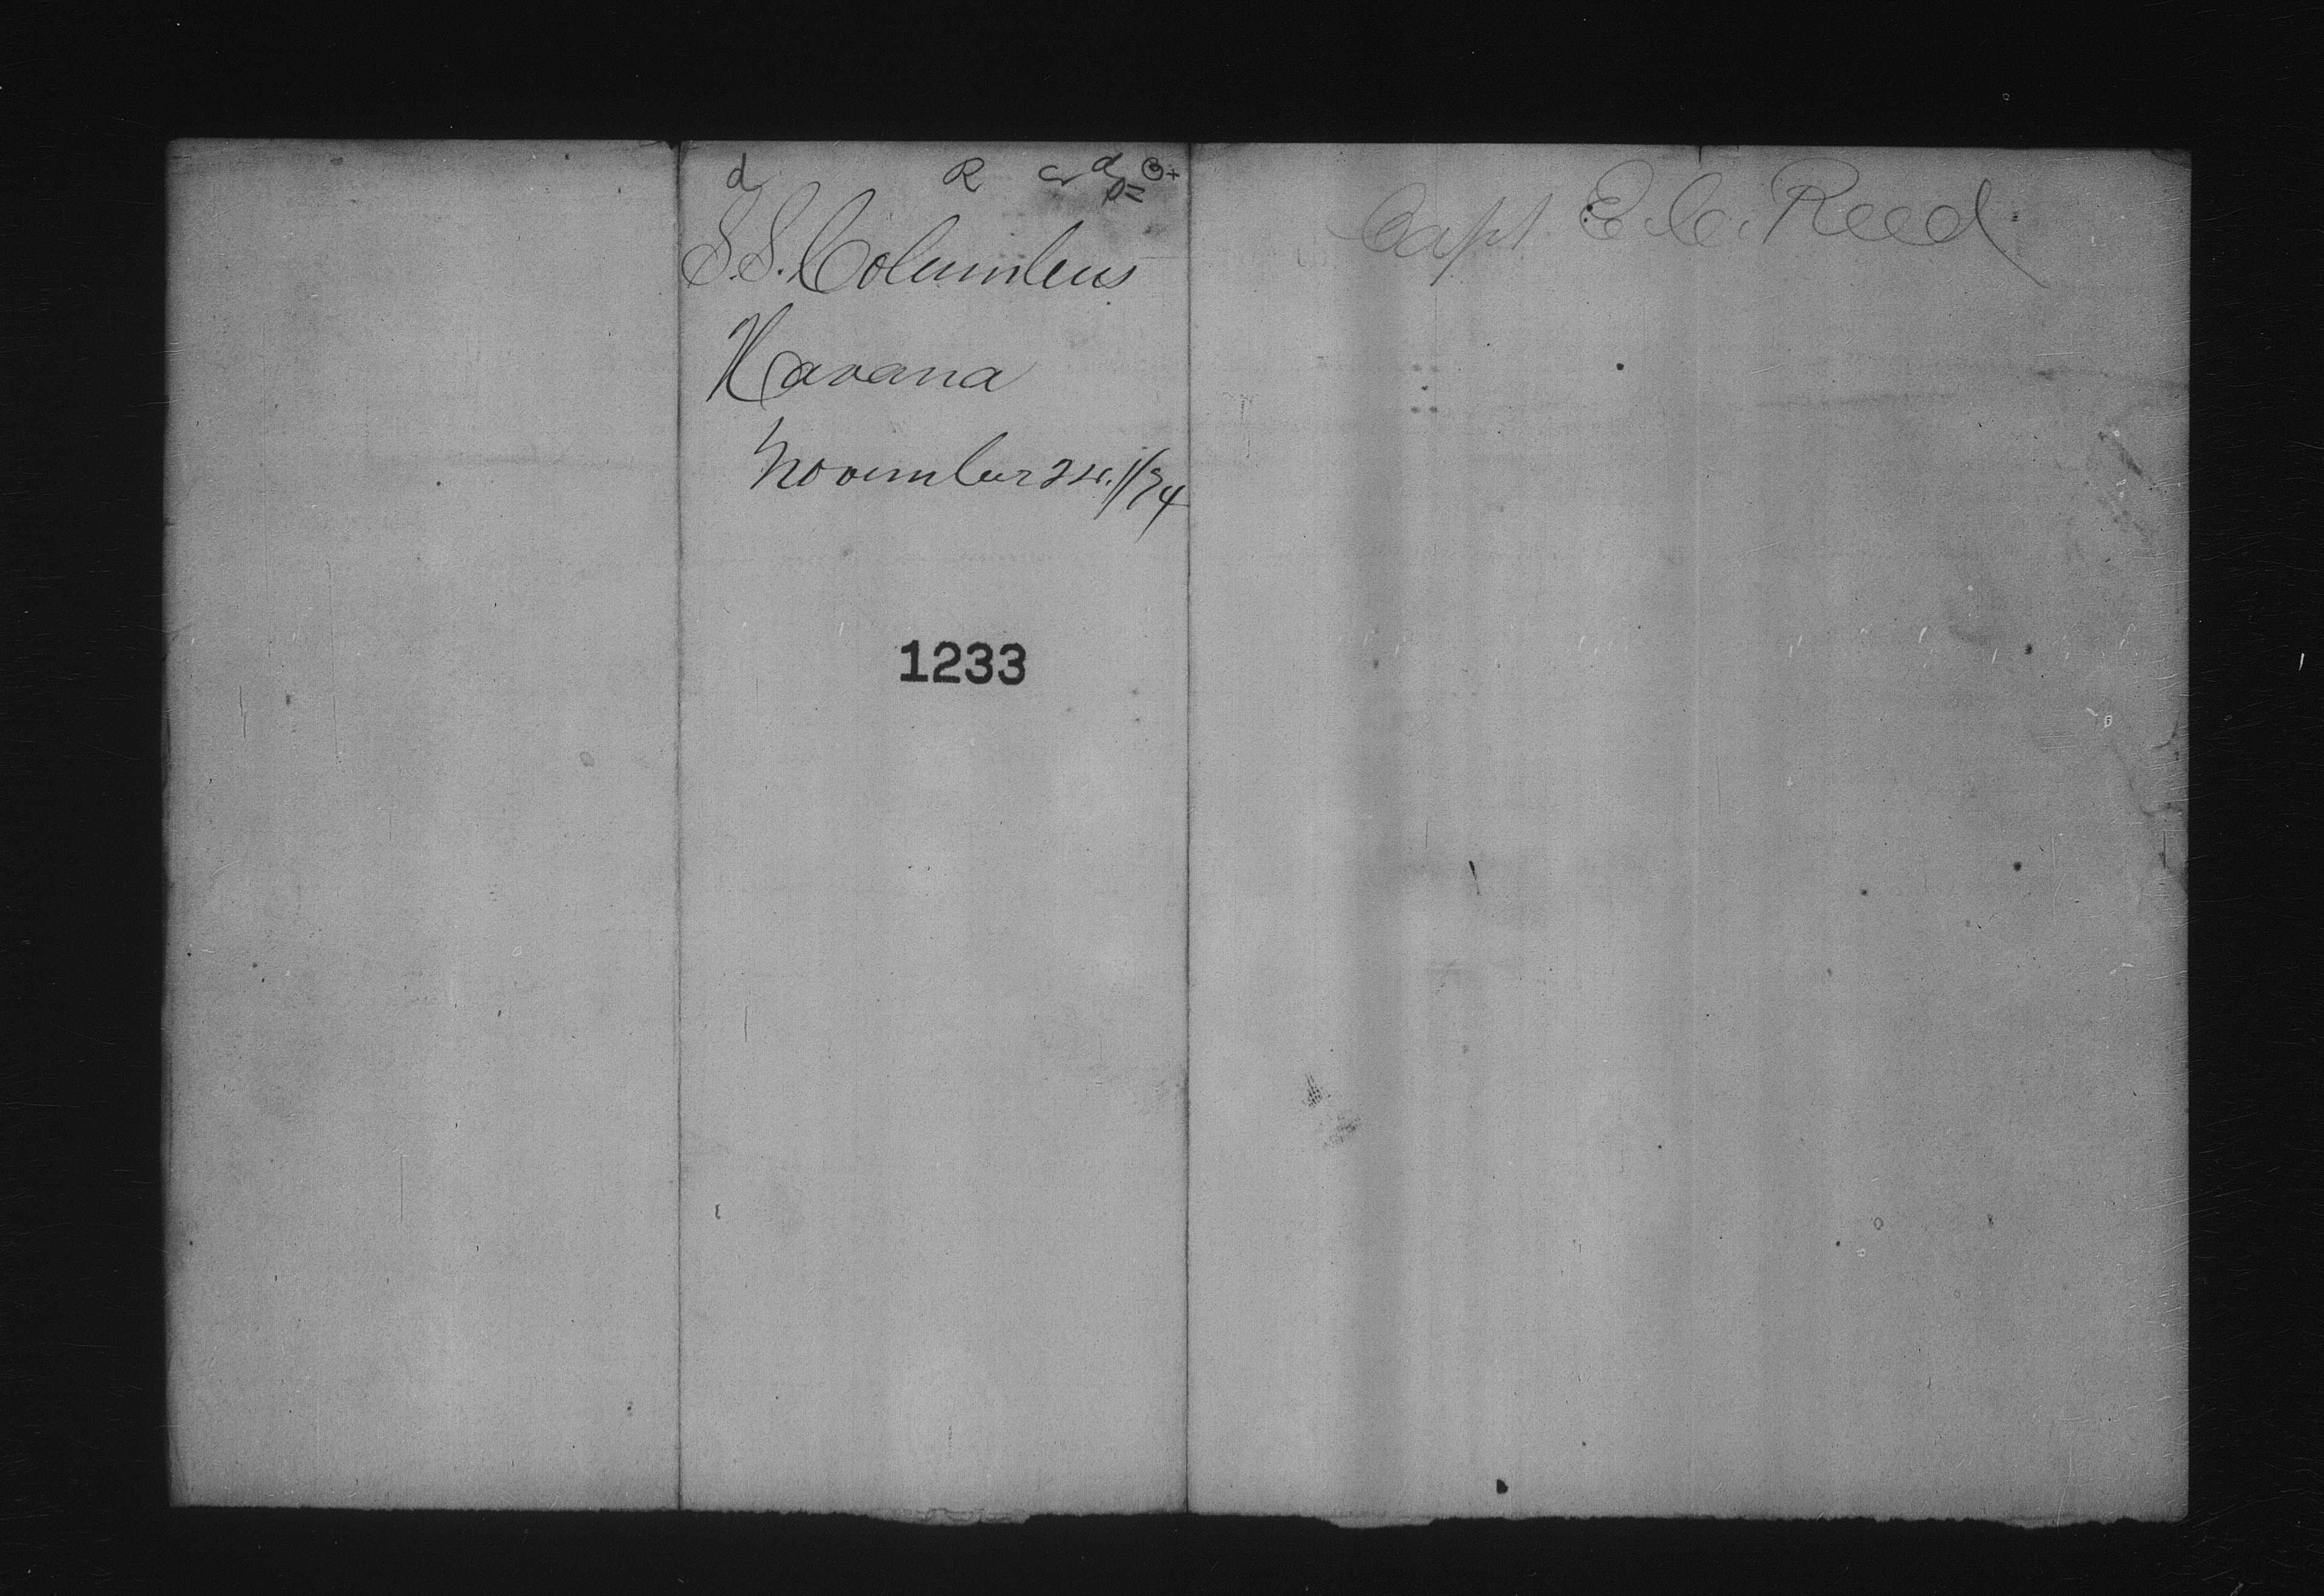 d R
S.S. Columbus
Havana
November 24. 1874
1233
Capt. E. C. Reed